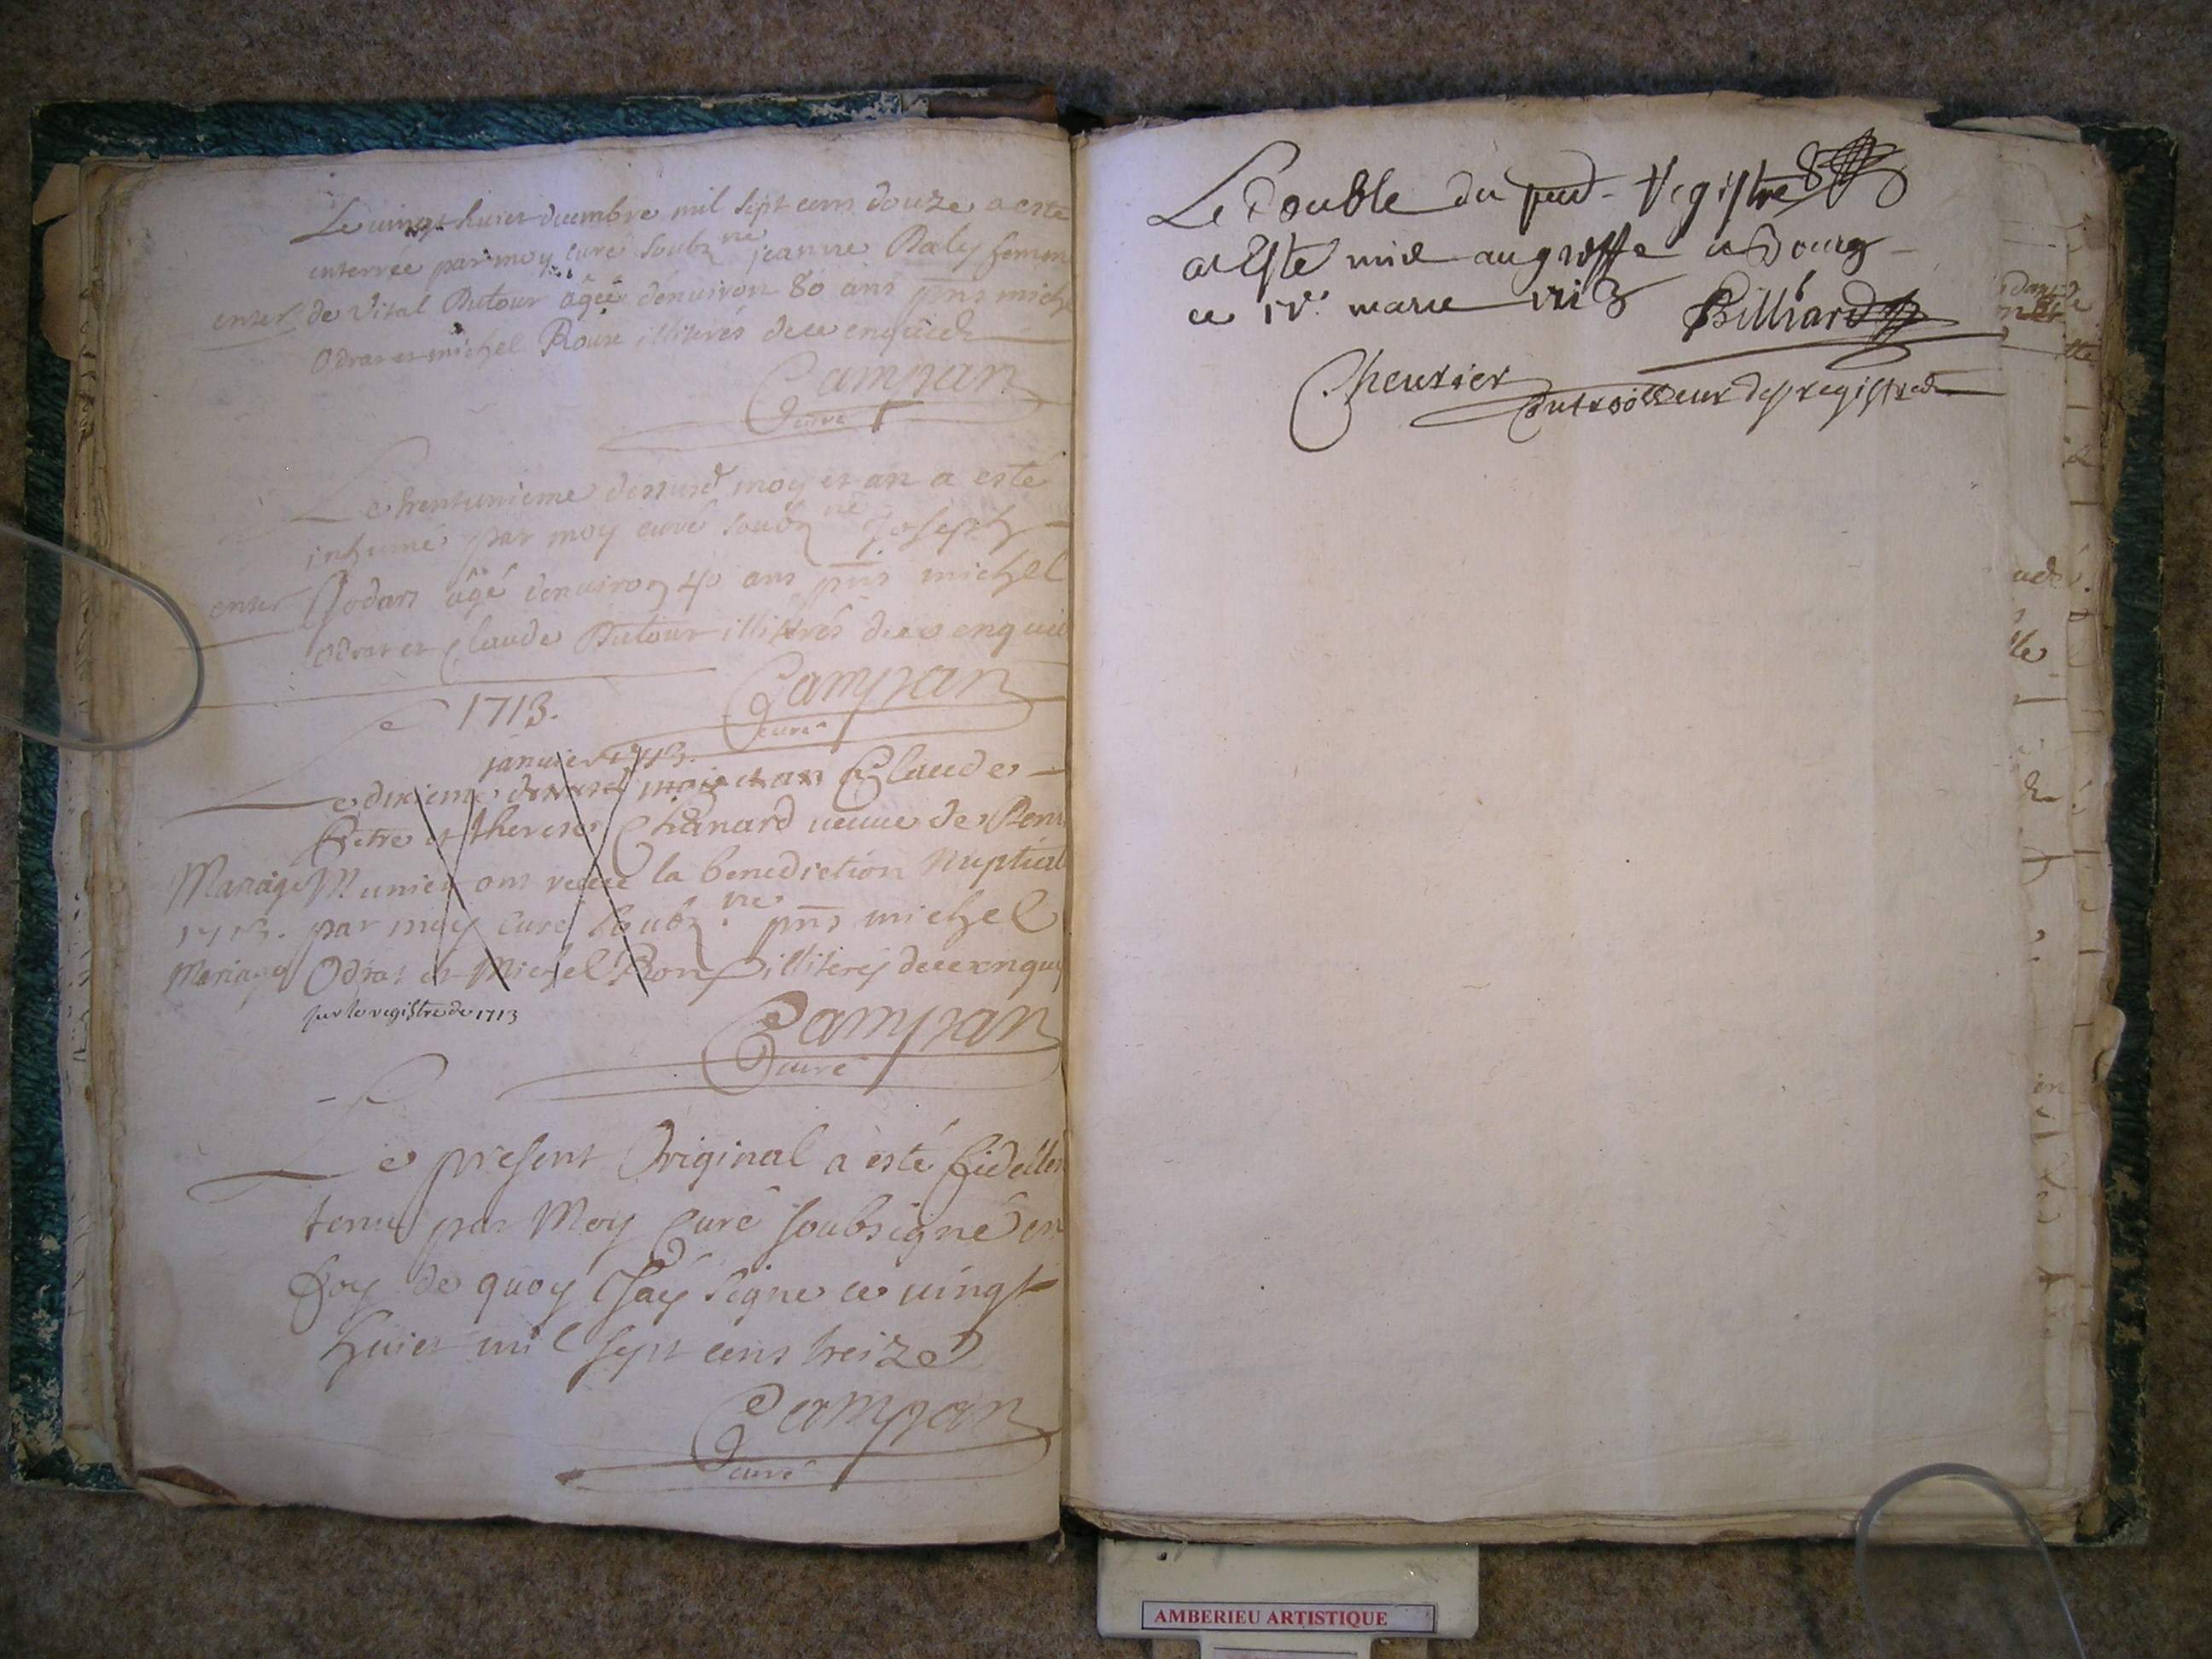 Le vingt huict decembre mil sept cens douze a este
enterrée par moy curé soubz.né jeanne Baly femme
enter. de Vital Dutour âgée denuiron 80 ans pñs michel
Odrat et michel Roux illiterés de ce enquis
Campan
curé
Le trentunieme dessusd moy et an a esté
inhumé par moy curé soubz.né Joseph
enter. Jodar âgé denuiron 40 ans pñs michel
Odrat et Claude Dutour illiterés de ce enquis
Campan
curé
1713.
janvier 1713.
Le dixieme dessusd mois et an Claude
et therese Chanard veuve de
Mariage Munier ont receu la benediction Nuptial
1713. par moy Curé soubz.né pñs michel
Mariage Odrat et Michel illiterés de ce enquis
sur le registre de 1713
Campan
curé
Le present Original a esté fidellem
tenu par Moy Curé soubsigné en
foy de quoy Jay signé ce vingt
huict mil sept cens treize
Campan
curé
Le double du pnt Registre
a Esté mis au greffe a Bourg
ce mars 1713 Billiard
Cheurier
Controlleur des registres
AMBERIEU ARTISTIQUE